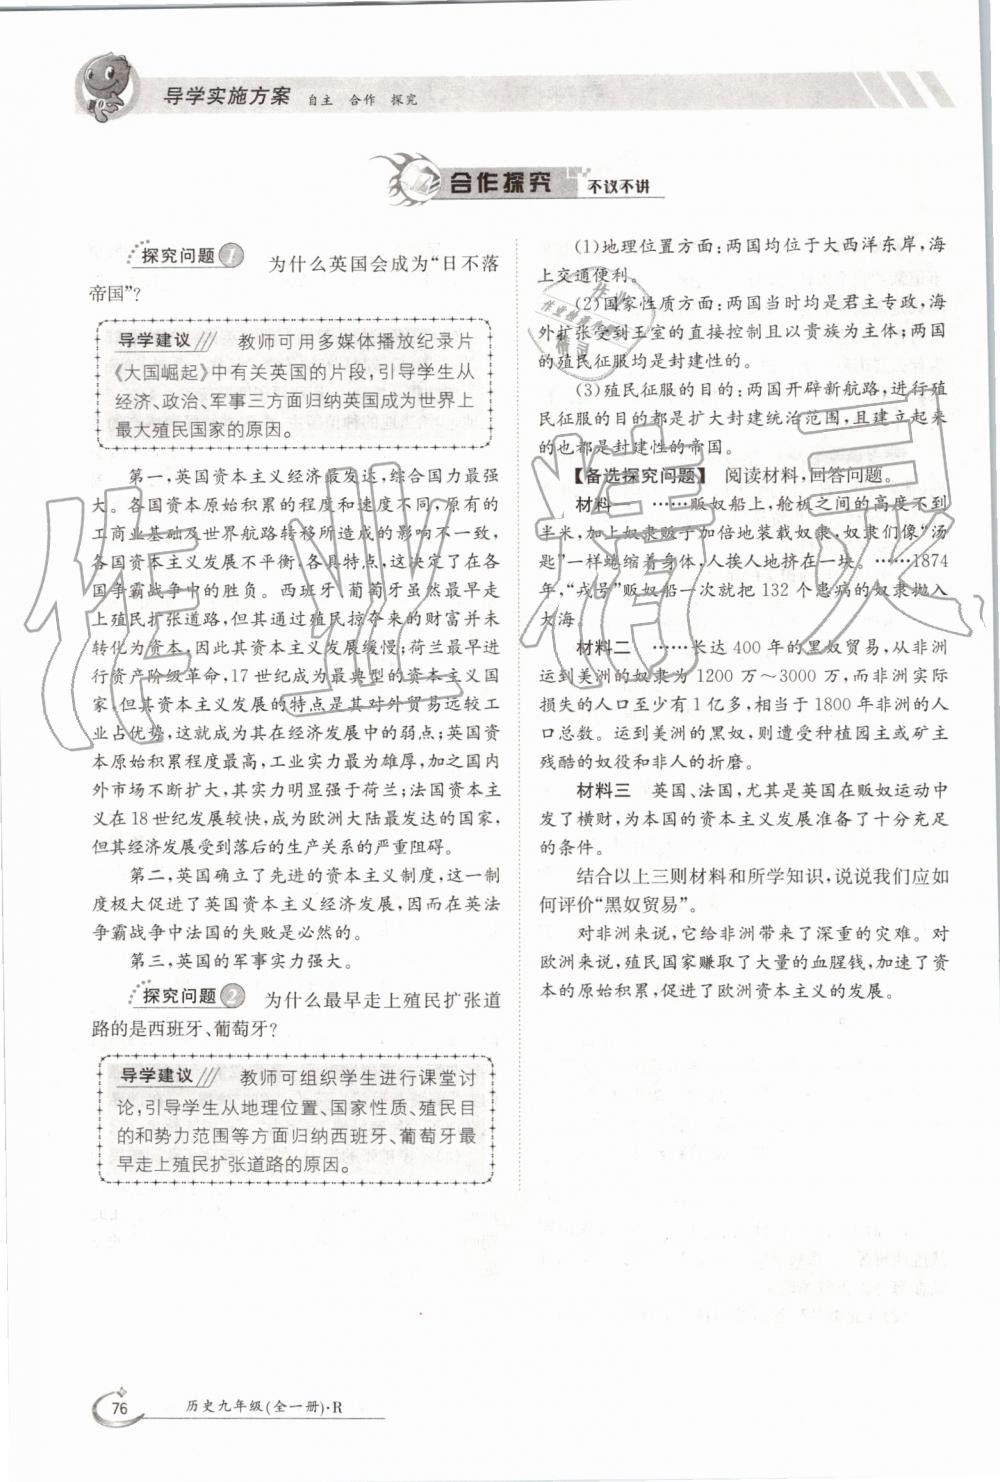 导学实施方案 自主 合作 探究
合作探究 不议不讲
探究问题1 为什么英国会成为“日不落
帝国”?
导学建议 教师可用多媒体播放纪录片
《大国崛起》中有关英国的片段,引导学生从
经济、政治、军事三方面归纳英国成为世界上
最大殖民国家的原因。
第一,英国资本主义经济最发达,综合国力最强
大。各国资本原始积累的程度和速度不同,原有的
工商业基础及世界航路转移所造成的影响不一致,
各国资本主义发展不平衡,各具特点,这决定了在各
国争霸战争中的胜负。西班牙、葡萄牙虽然最早走
上殖民扩张道路,但其通过殖民掠夺来的财富并未
转化为资本,因此其资本主义发展缓慢;荷兰最早进
行资产阶级革命,17世纪成为最典型的资本主义国
家,但其资本主义发展的特点是其对外贸易远较工
业占优势,这就成为其在经济发展中的弱点;英国资
本原始积累程度最高,工业实力最为雄厚,加之国内
外市场不断扩大,其实力明显强于荷兰;法国资本主
义在18世纪发展较快,成为欧洲大陆最发达的国家,
但其经济发展受到落后的生产关系的严重阻碍。
第二,英国确立了先进的资本主义制度,这一制
度极大促进了英国资本主义经济发展,因而在英法
争霸战争中法国的失败是必然的。
第三,英国的军事实力强大。
探究问题2 为什么最早走上殖民扩张道
路的是西班牙、葡萄牙?
导学建议 教师可组织学生进行课堂讨
论,引导学生从地理位置、国家性质、殖民目
的和势力范围等方面归纳西班牙、葡萄牙最
早走上殖民扩张道路的原因。
(1)地理位置方面:两国均位于大西洋东岸,海
上交通便利。
(2)国家性质方面:两国当时均是君主专政,海
外扩张受到王室的直接控制且以贵族为主体;两国
的殖民征服均是封建性的。
(3)殖民征服的目的:两国开辟新航路,进行殖
民征服的目的都是扩大封建统治范围,且建立起来
的也都是封建性的帝国。
【备选探究问题】 阅读材料,回答问题。
材料一 ……贩奴船上,舱板之间的高度不到
半米,加上奴隶贩子加倍地装载奴隶,奴隶们像“汤
匙”一样蜷缩着身体,人挨人地挤在一块。……1874
年,“戎号”贩奴船一次就把132个患病的奴隶抛入
大海。
材料二 ……长达400年的黑奴贸易,从非洲
运到美洲的奴隶为1200万～3000万,而非洲实际
损失的人口至少有1亿多,相当于1800年非洲的人
口总数。运到美洲的黑奴,则遭受种植园主或矿主
残酷的奴役和非人的折磨。
材料三 英国、法国,尤其是英国在贩奴运动中
发了横财,为本国的资本主义发展准备了十分充足
的条件。
结合以上三则材料和所学知识,说说我们应如
何评价“黑奴贸易”。
对非洲来说,它给非洲带来了深重的灾难。对
欧洲来说,殖民国家赚取了大量的血腥钱,加速了资
本的原始积累,促进了欧洲资本主义的发展。
作业精灵
76 历史九年级(全一册)·R